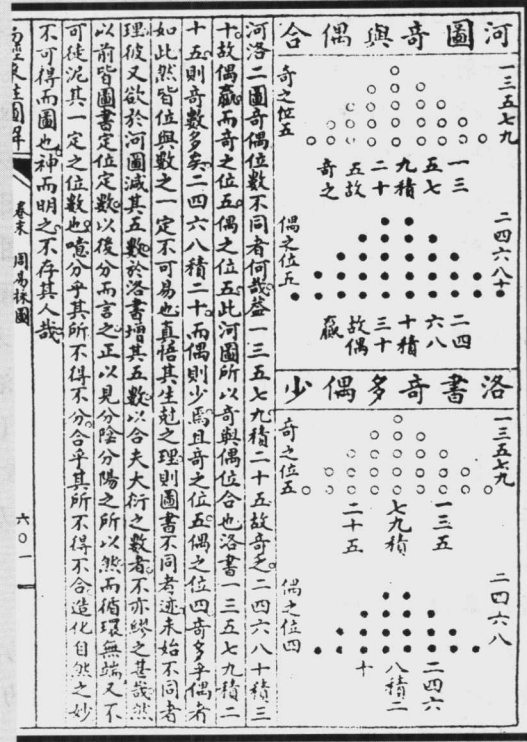 河圖奇與偶合
一三五七九
一三
五七
九積
二十
五故
奇之
奇之位五
二四六八十
二四
六八
十積
三十
故偶
贏
偶之位五
洛書奇多偶少
一三五七九
一三五
七九積
二十五
奇之位五
二四六八
二四六
八積二
十
偶之位四
河洛二圖奇偶位數不同者何哉葢一三五七九積二十五故奇乏二四六八十積三
十故偶贏而奇之位五偶之位五此河圖所以奇與偶位合也洛書一三五七九積二
十五則奇數多矣二四六八積二十而偶則少焉且奇之位五偶之位四奇多乎偶者
如此然皆位與數之一定不可易也真悟其生尅之理則圖書不同者迹未始不同者
理彼又欲於河圖減其五數於洛書增其五數以合夫大衍之數者不亦繆之甚哉然
以前皆圖書定位定數以後分而言之正以見分陰分陽之所以然而循環無端又不
可徒泥其一定之位數也噫分乎其所不得不分合乎其所不得不合造化自然之妙
不可得而圖也神而明之不存其人哉
卷末
周易採圖
六〇一